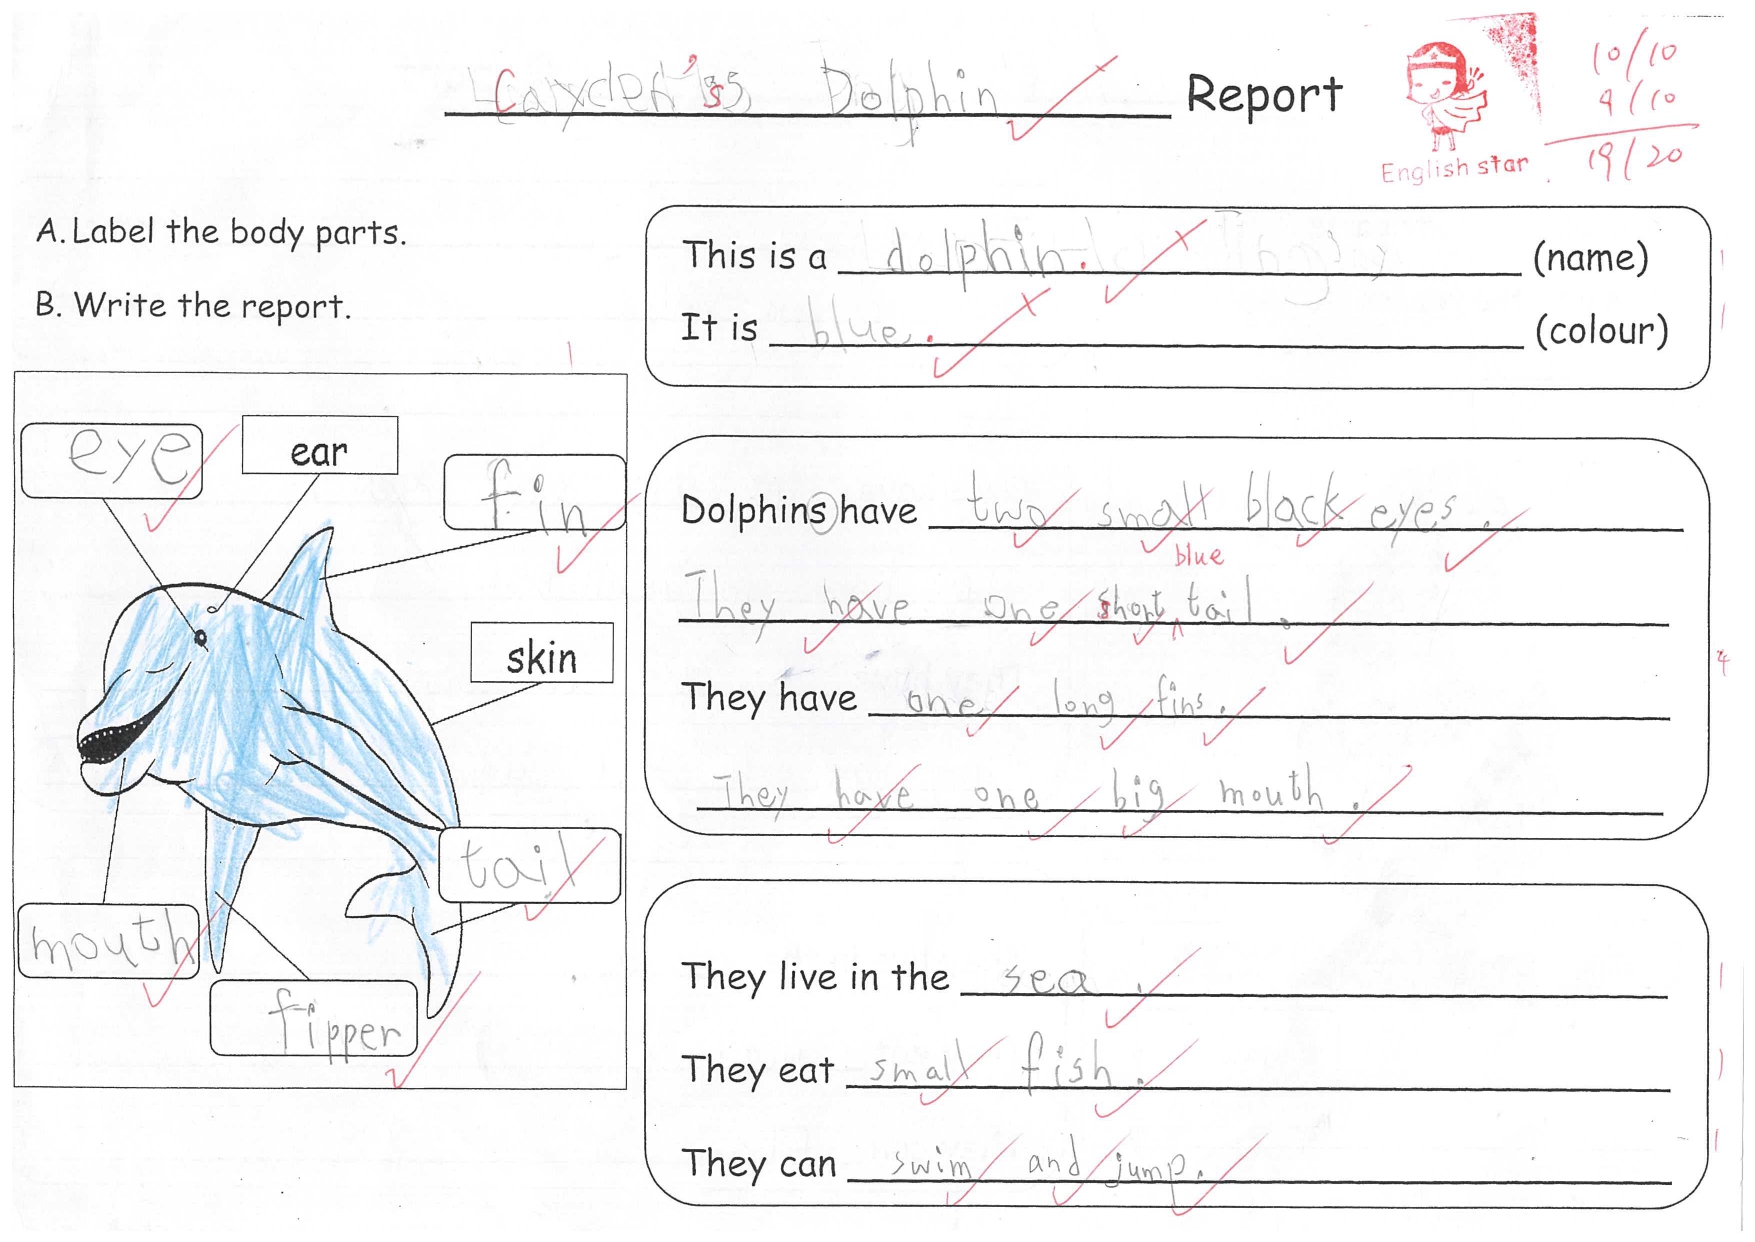 Carxden's Dolphin Report
English star
10/10
9/10
19/20
A. Label the body parts.
B. Write the report.
This is a dolphin. (name)
It is blue. (colour)
1
1
1
eye
ear
fin
skin
tail
mouth
fipper
Dolphins have two small black eyes.
blue
They have one short tail.
They have one long fins.
They have one big mouth.
4
They live in the sea.
They eat small fish.
They can swim and jump.
1
1
1